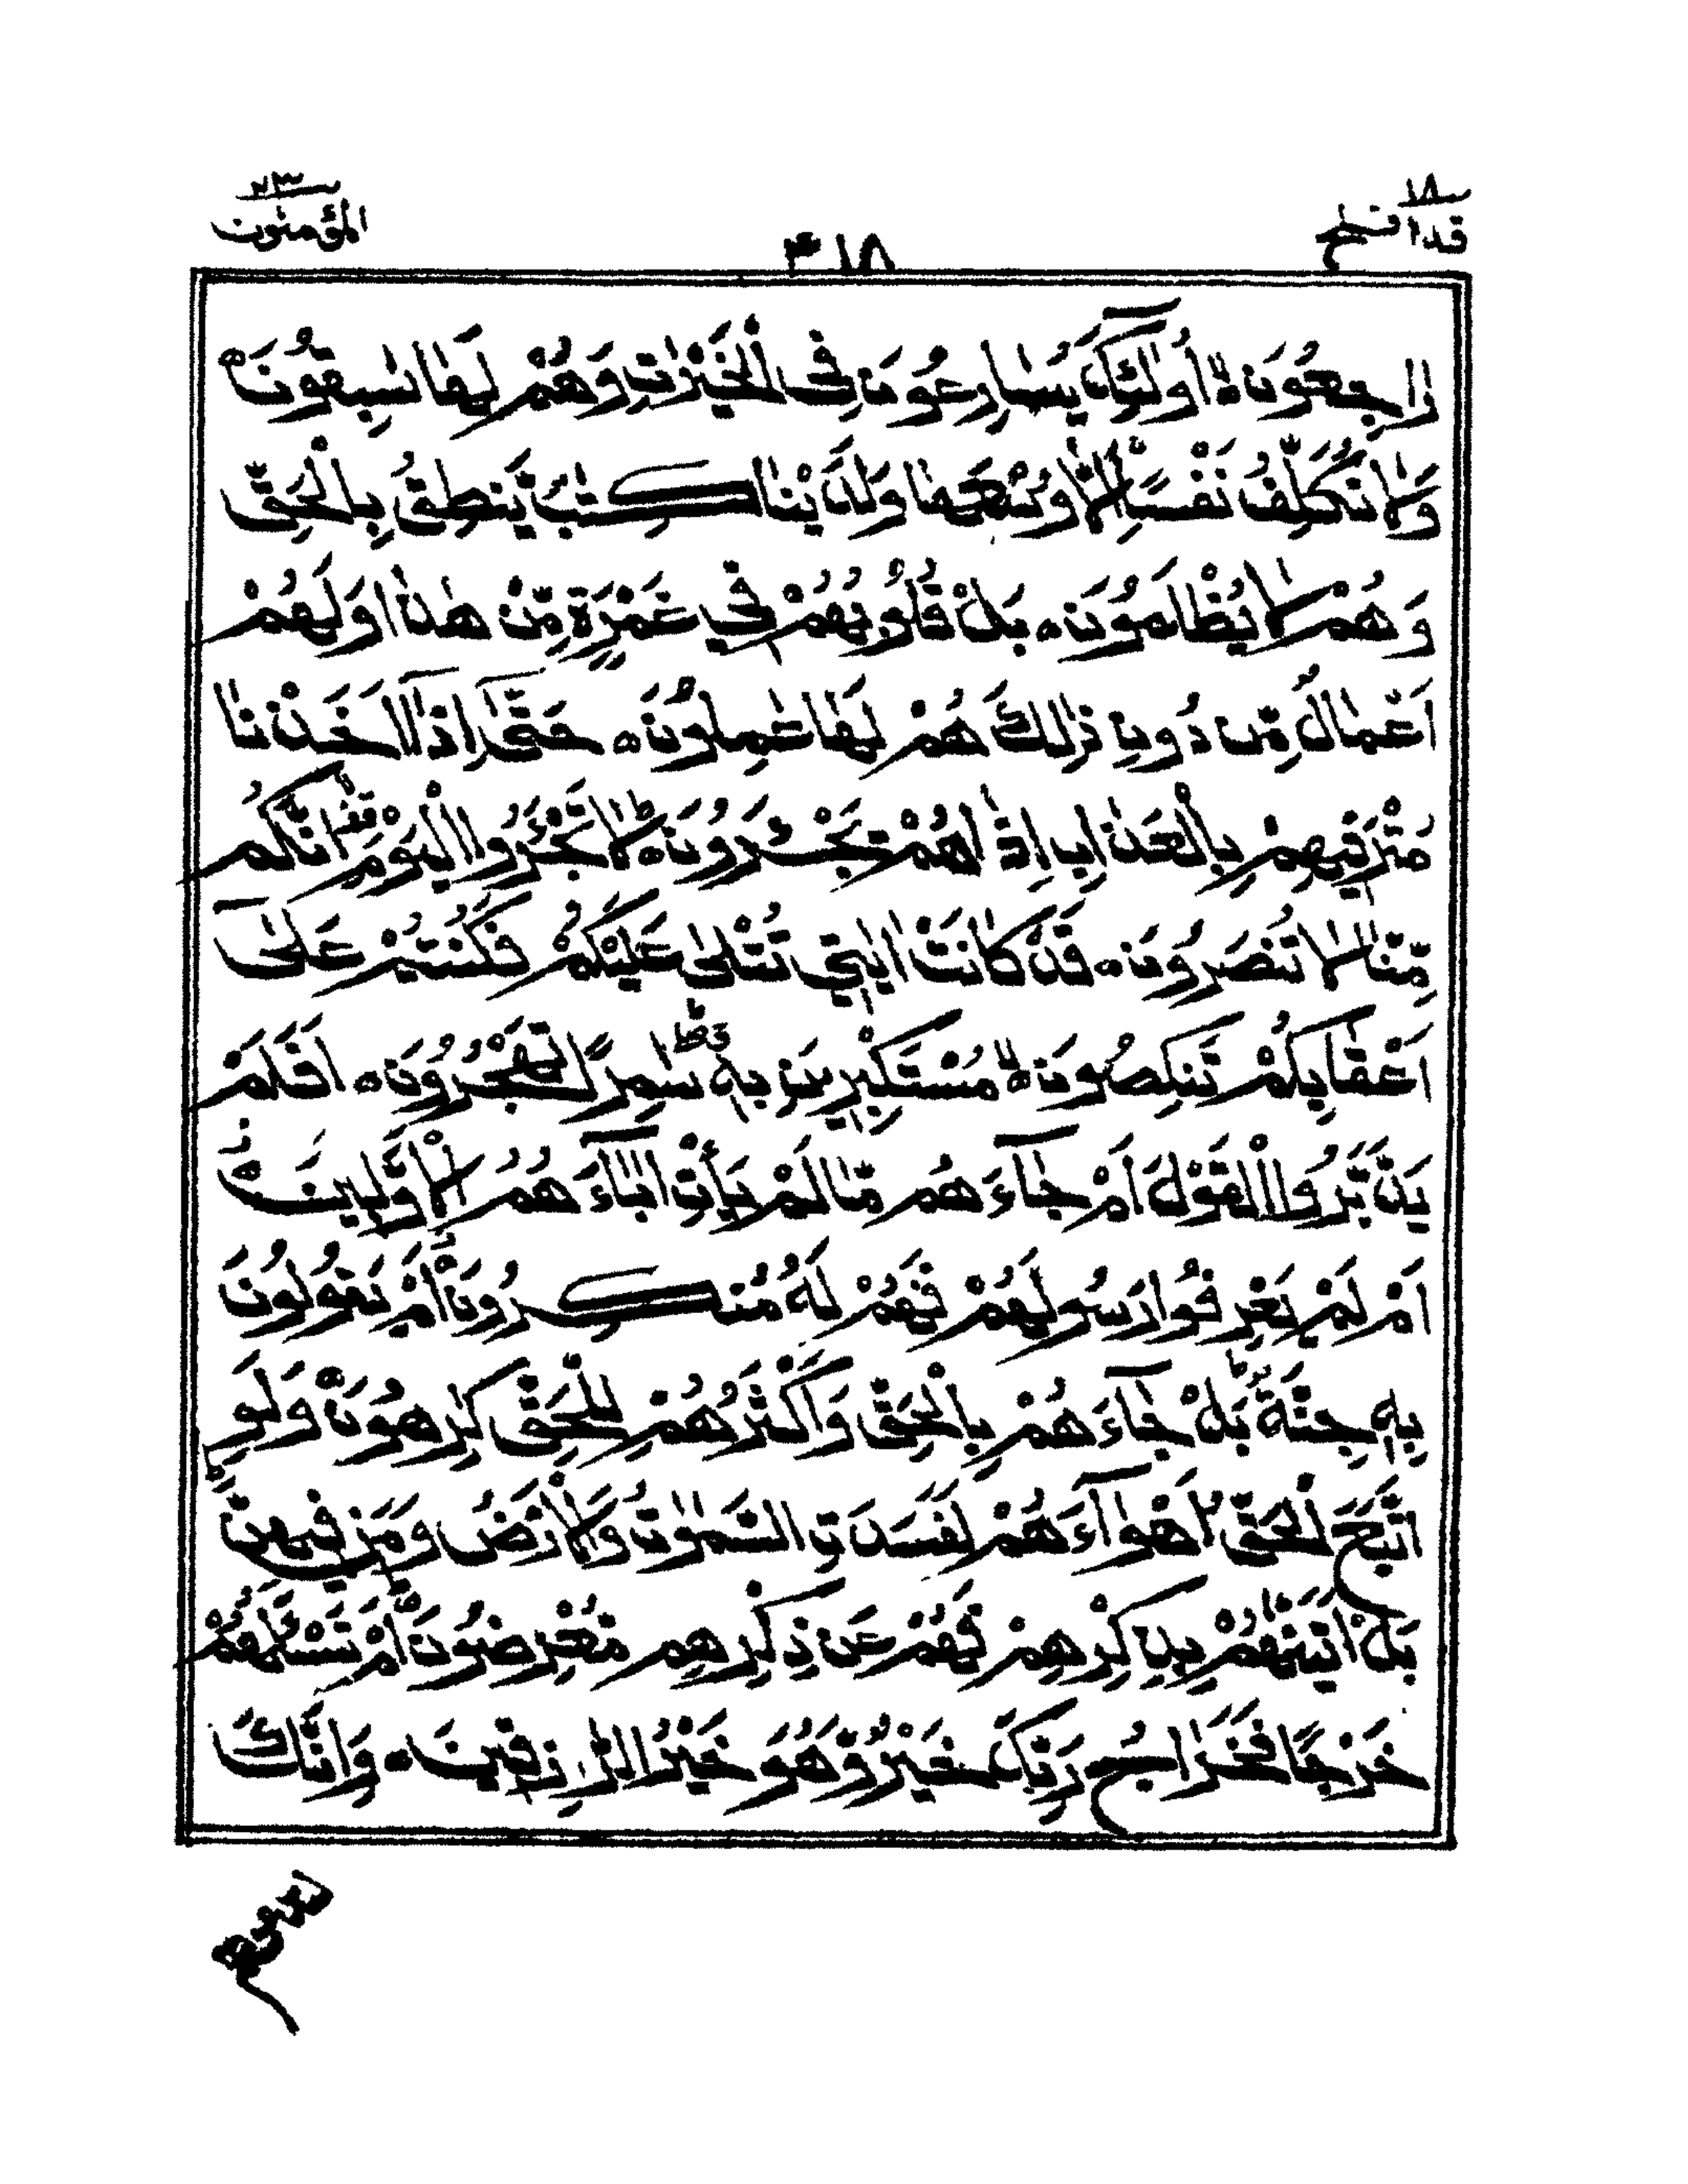 ١٨
قد افلح
٤١٨
٢٣
المؤمنون
رٰاجِعُونَ۝ۙ اُولٰٓئِكَ يُسٰارِعُونَ فِى الْخَيْرٰتِ وَهُمْ لَهٰا سٰبِقُونَ۝
وَلٰا نُكَلِّفُ نَفْسًا اِلّٰا وُسْعَهٰا وَلَدَيْنٰا كِتٰبٌ يَّنطِقُ بِالْحَقِّ
وَهُمْ لٰا يُظْلَمُونَ۝ بَلْ قُلُوبُهُمْ فِي غَمْرَةٍ مِّنْ هٰذٰا وَلَهُمْ
اَعْمٰالٌ مِّن دُونِ ذٰلِكَ هُمْ لَهٰا عٰمِلُونَ۝ حَتّٰىٓ اِذٰٓا اَخَذْنٰا
مُتْرَفِيهِم بِالْعَذٰابِ اِذٰا هُمْ يَجْـَٔرُونَ۝ؕ لٰا تَجْـَٔرُوا الْيَوْمَ قف اِنَّكُم
مِّنّٰا لٰا تُنصَرُونَ۝ قَدْ كٰانَتْ اٰيٰتِي تُتْلٰى عَلَيْكُمْ فَكُنتُمْ عَلٰٓى
اَعْقٰابِكُمْ تَنكِصُونَ۝ۙ مُسْتَكْبِرِينَ بِهٖ سٰمِرًا تَهْجُرُونَ۝ اَفَلَمْ
يَدَّبَّرُوا الْقَوْلَ اَمْ جٰٓاءَهُم مّٰا لَمْ يَأْتِ اٰبٰٓاءَهُمُ الْاَوَّلِينَ۝
اَمْ لَمْ يَعْرِفُوا رَسُولَهُمْ فَهُمْ لَهُ مُنكِرُونَ۝ اَمْ يَقُولُونَ
بِهٖ جِنَّةٌؕ بَلْ جٰٓاءَهُمْ بِالْحَقِّ وَاَكْثَرُهُمْ لِلْحَقِّ كٰرِهُونَ۝ وَلَوِ
اتَّبَعَ الْحَقُّ اَهْوٰٓاءَهُمْ لَفَسَدَتِ السَّمٰوٰتُ وَالْاَرْضُ وَمَن فِيهِنَّؕ
بَلْ اَتَيْنٰهُمْ بِذِكْرِهِمْ فَهُمْ عَن ذِكْرِهِم مُّعْرِضُونَ۝ اَمْ تَسْـَٔلُهُمْ
خَرْجًا فَخَرٰاجُ رَبِّكَ خَيْرٌ وَّهُوَ خَيْرُ الرّٰازِقِينَ۝ وَاِنَّكَ